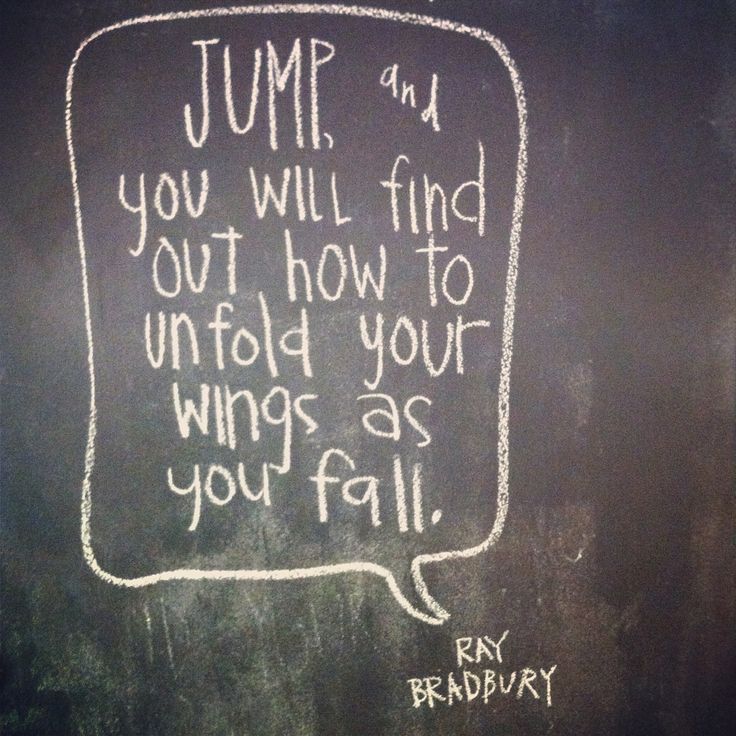 JUMP, and
you will find
out how to
unfold your
wings as
you fall.
RAY
BRADBURY